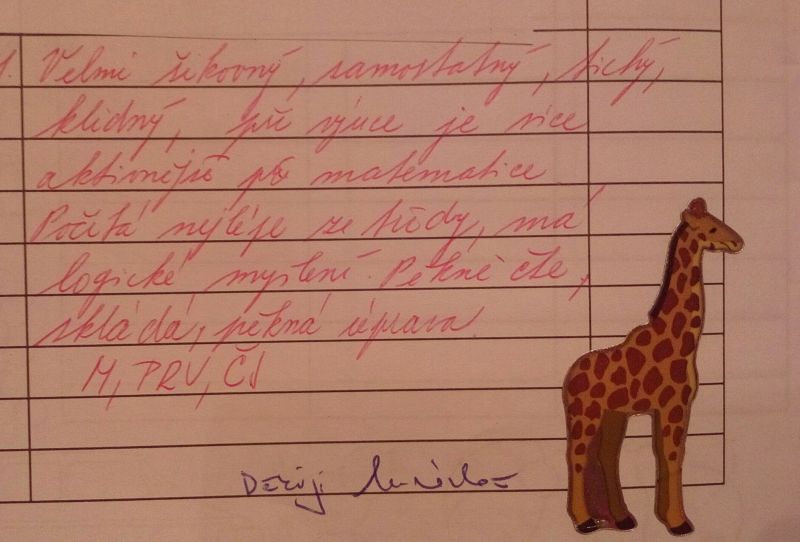 1. Velmi šikovný, samostatný, tichý,
klidný, při výuce je více
aktivnější při matematice
Počítá nejlépe ze třídy, má
logické myšlení. Pěkně čte,
skládá, pěkná úprava.
M, PRV, ČJ
Děkuji